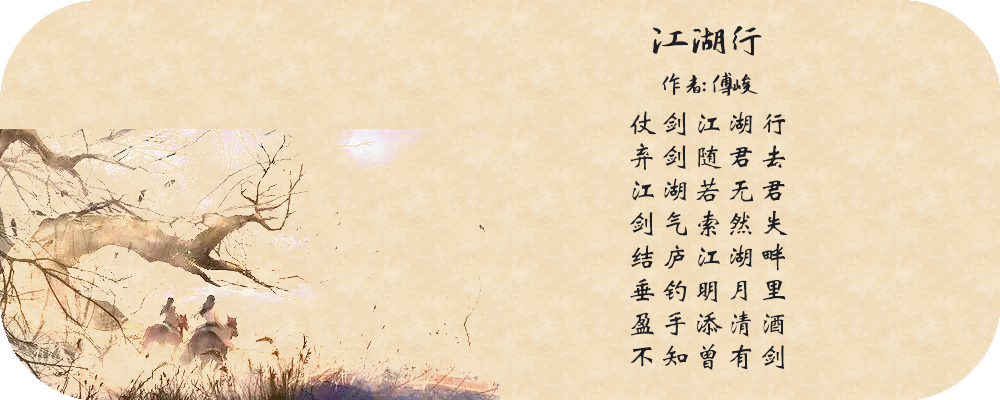 江湖行
作者:傅峻
仗剑江湖行
弃剑随君去
江湖若无君
剑气索然失
结庐江湖畔
垂钓明月里
盈手添清酒
不知曾有剑